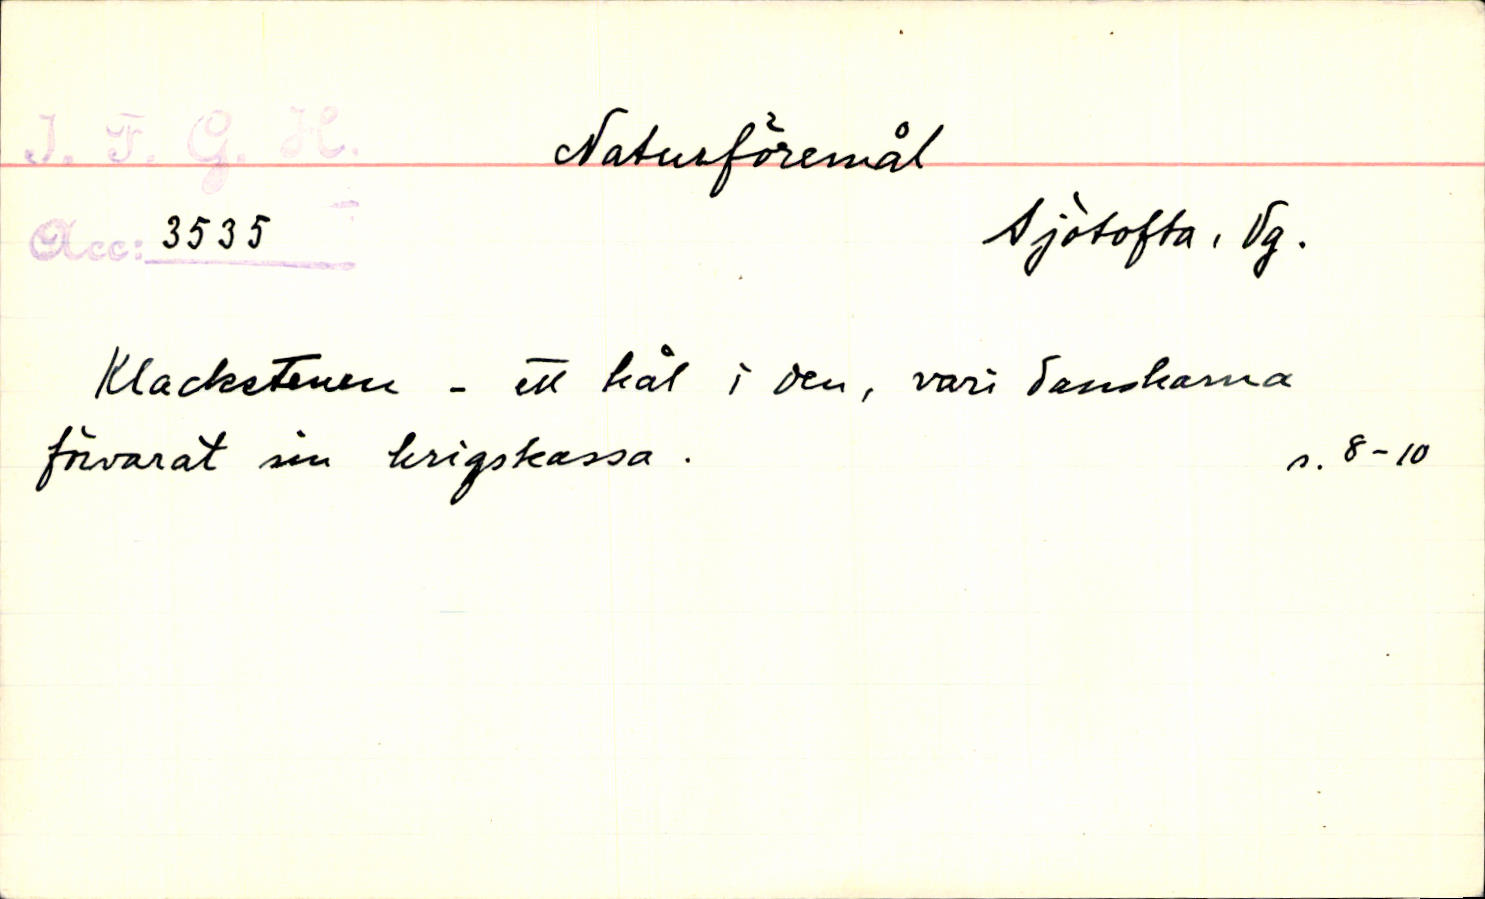 I. F. G. H.
Naturföremål
Acc: 3535
Sjötofta, Vg.
Klackstenen - ett hål i den, vari danskarna
förvarat sin krigskassa.
s. 8-10